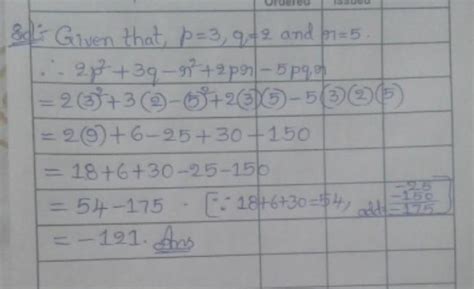 Ordered Issued
Sol:- Given that, p=3, q=2 and r=5.
∴ 2p²+3q-r²+2pr-5pqr
=2(3)²+3(2)-(5)²+2(3)(5)-5(3)(2)(5)
=2(9)+6-25+30-150
=18+6+30-25-150
=54-175 · [∵ 18+6+30=54, add: -25
-150
=-175]
=-121. Ans